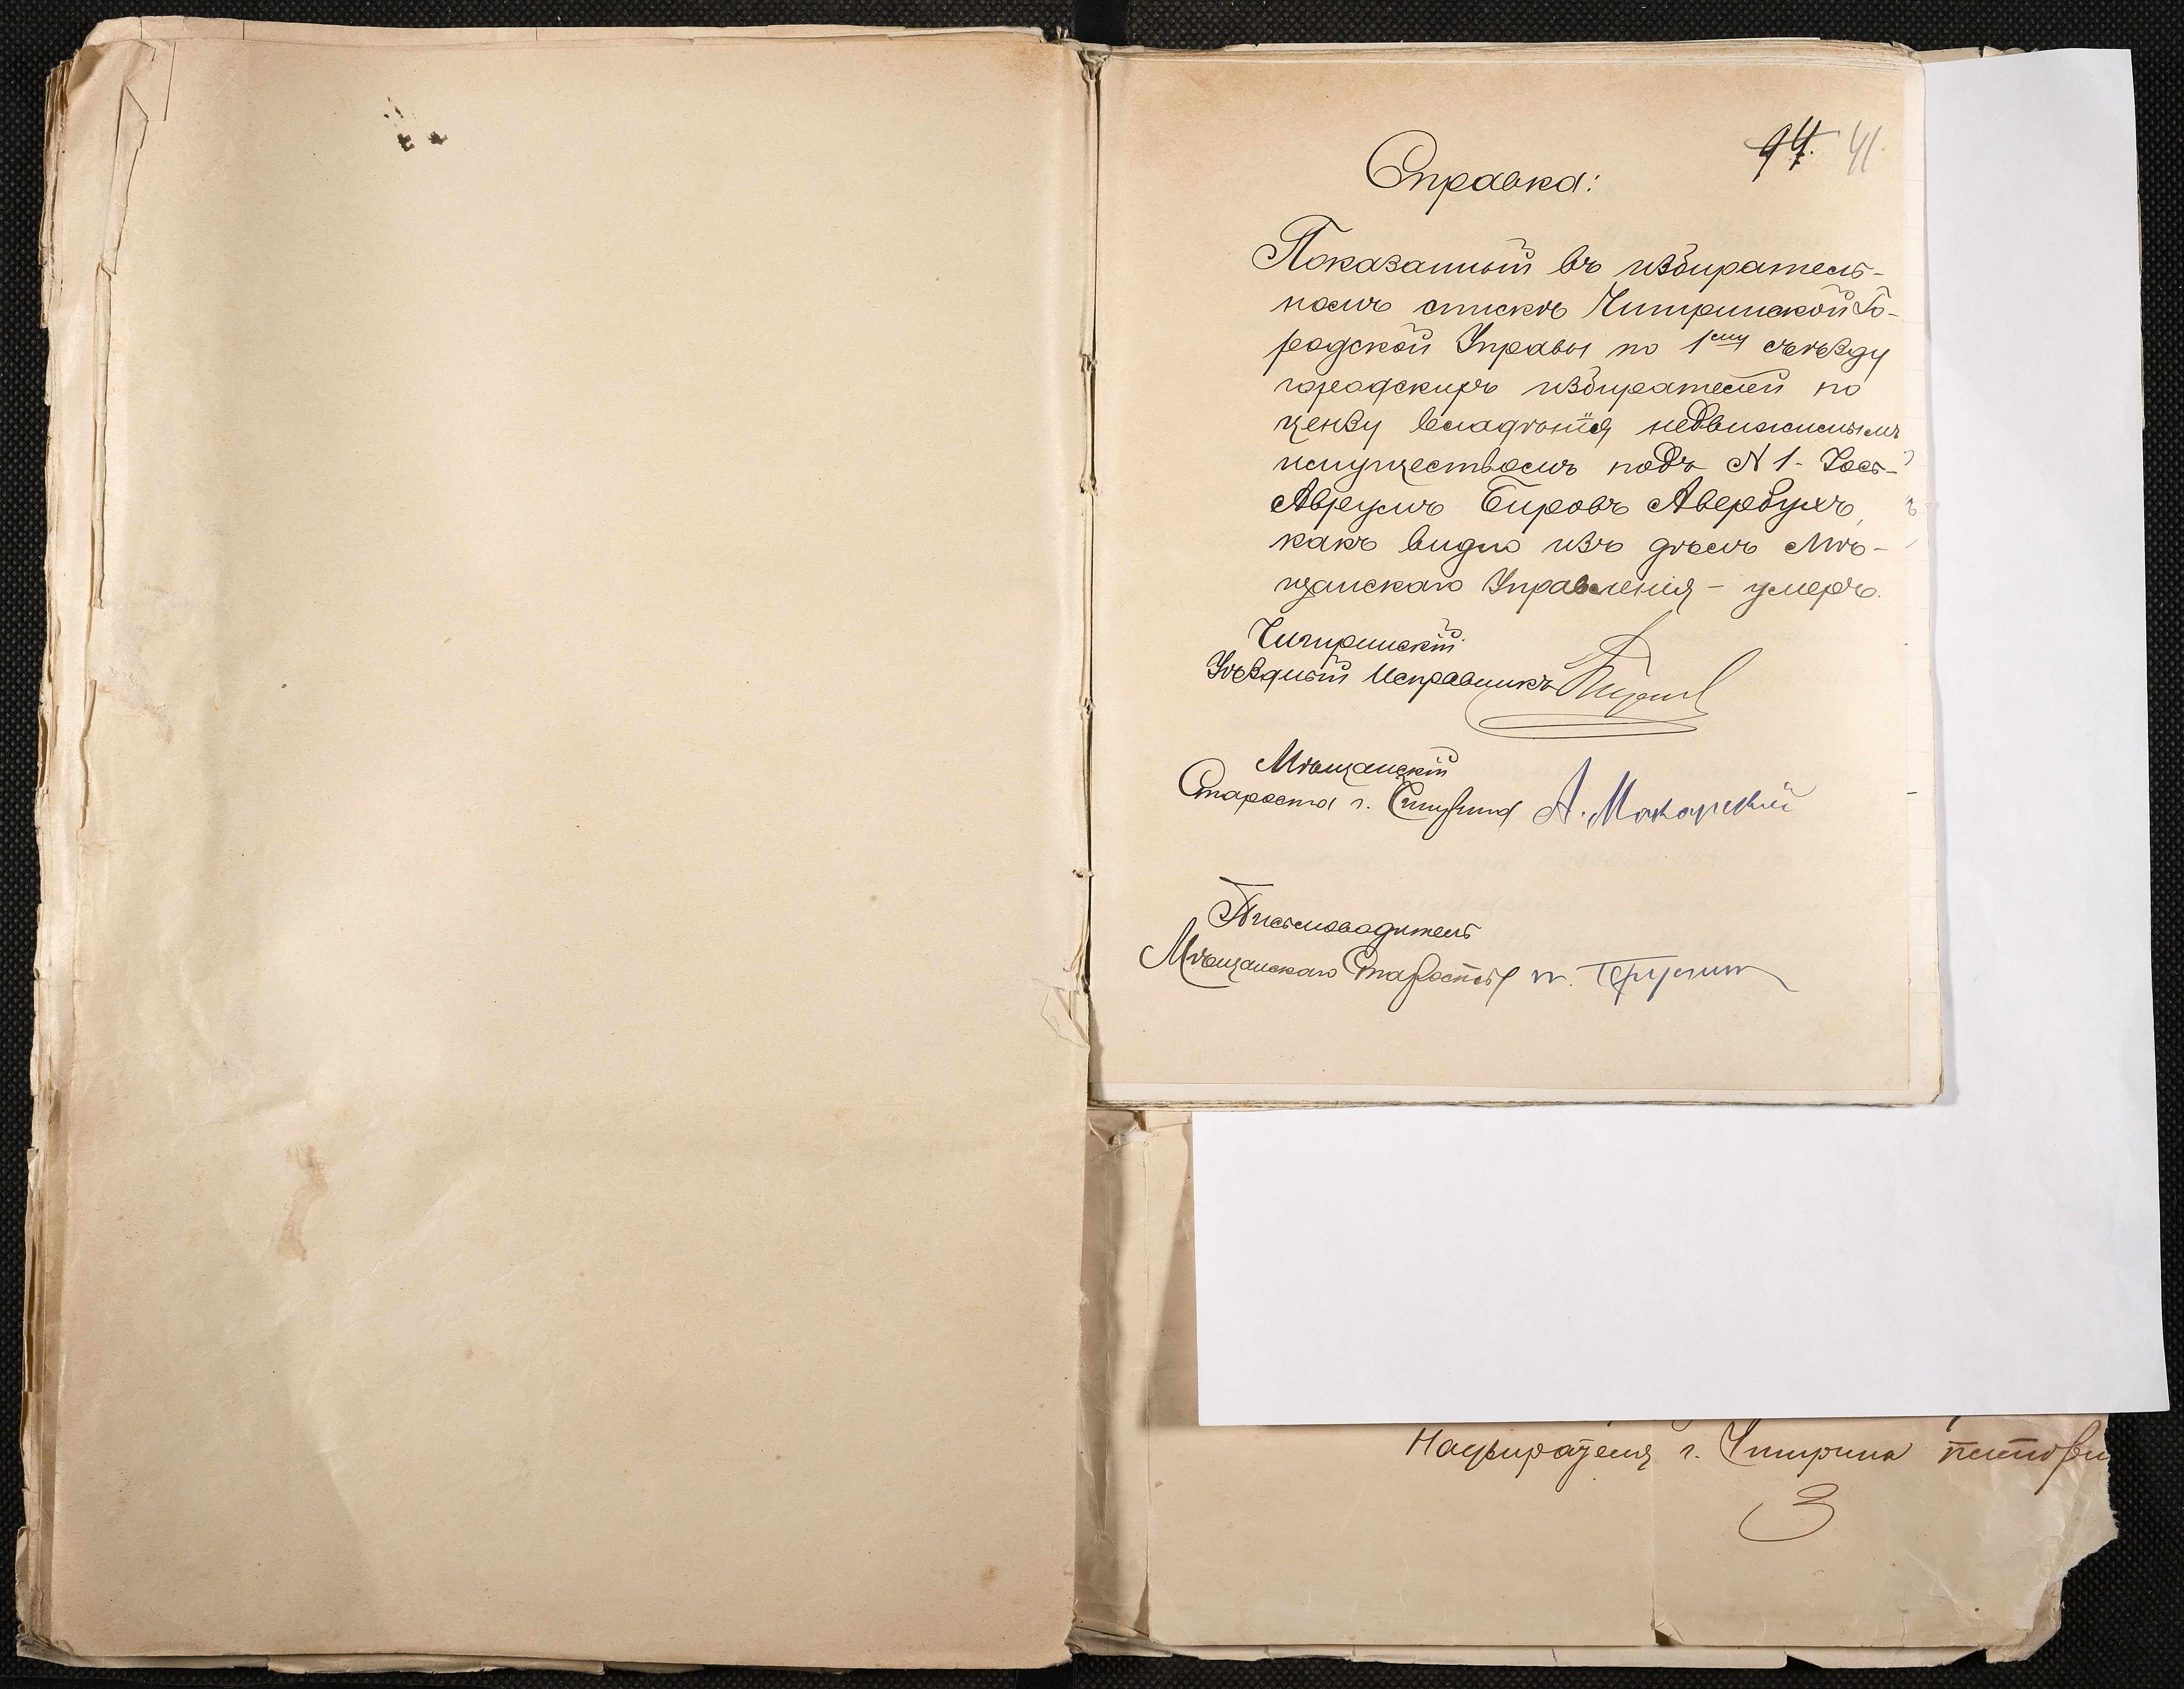 94. 41.
Справка:
Показанный въ избиратель-
номъ списке Чигиринской Го-
родской Управы по 1ому съѣзду
городскихъ избирателей по
цензу владѣнія недвижимымъ
имуществомъ подъ N 1- Іось-
Аврумъ Беровъ Авербухъ,
какъ видно изъ дѣлъ Мѣ-
щанскаго Управленія - умеръ.
Чигиринскій
Уѣздный Исправникъ
Мѣщанскій
Староста г. Чигирина А. Макаревий
Письмоводитель
Мѣщанскаго Старосты
г. Чигирина
3